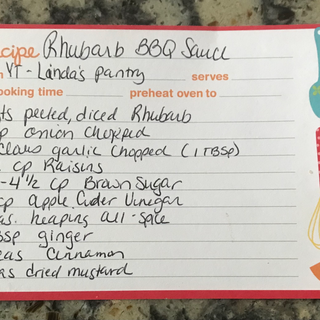 cipe Rhubarb BBQ Sauce
VT - Linda's Pantry serves
ooking time preheat oven to
ts peeled, diced Rhubarb
p onion chopped
claws garlic chopped (1 TBSP)
cp Raisins
-4 1/2 cp Brown Sugar
cp apple Cider Vinegar
as. heaping all-spice
BSP ginger
eas Cinnamon
as dried mustard